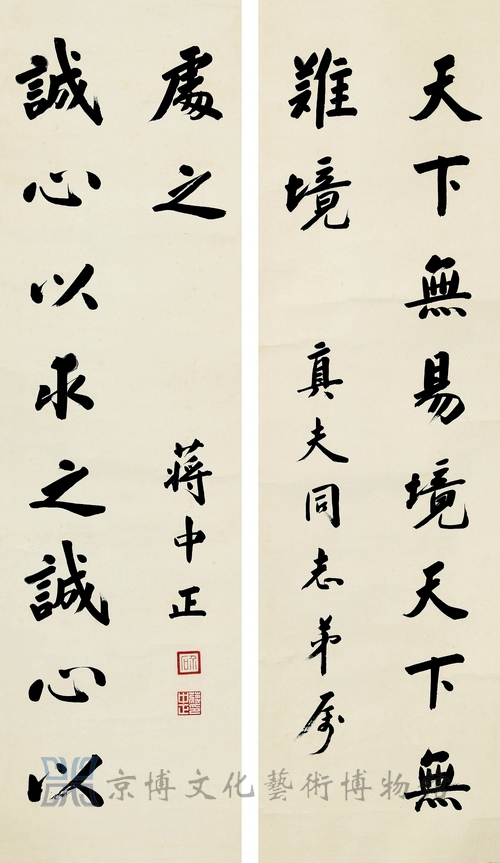 天下無易境天下無
難境
真夫同志弟属
誠心以求之誠心以
處之
蔣中正
京博文化藝術博物